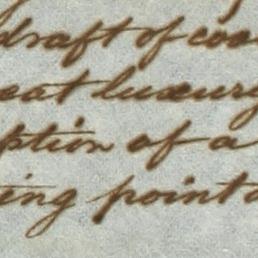 draft of coo
eat luxury
ption of a
ing point